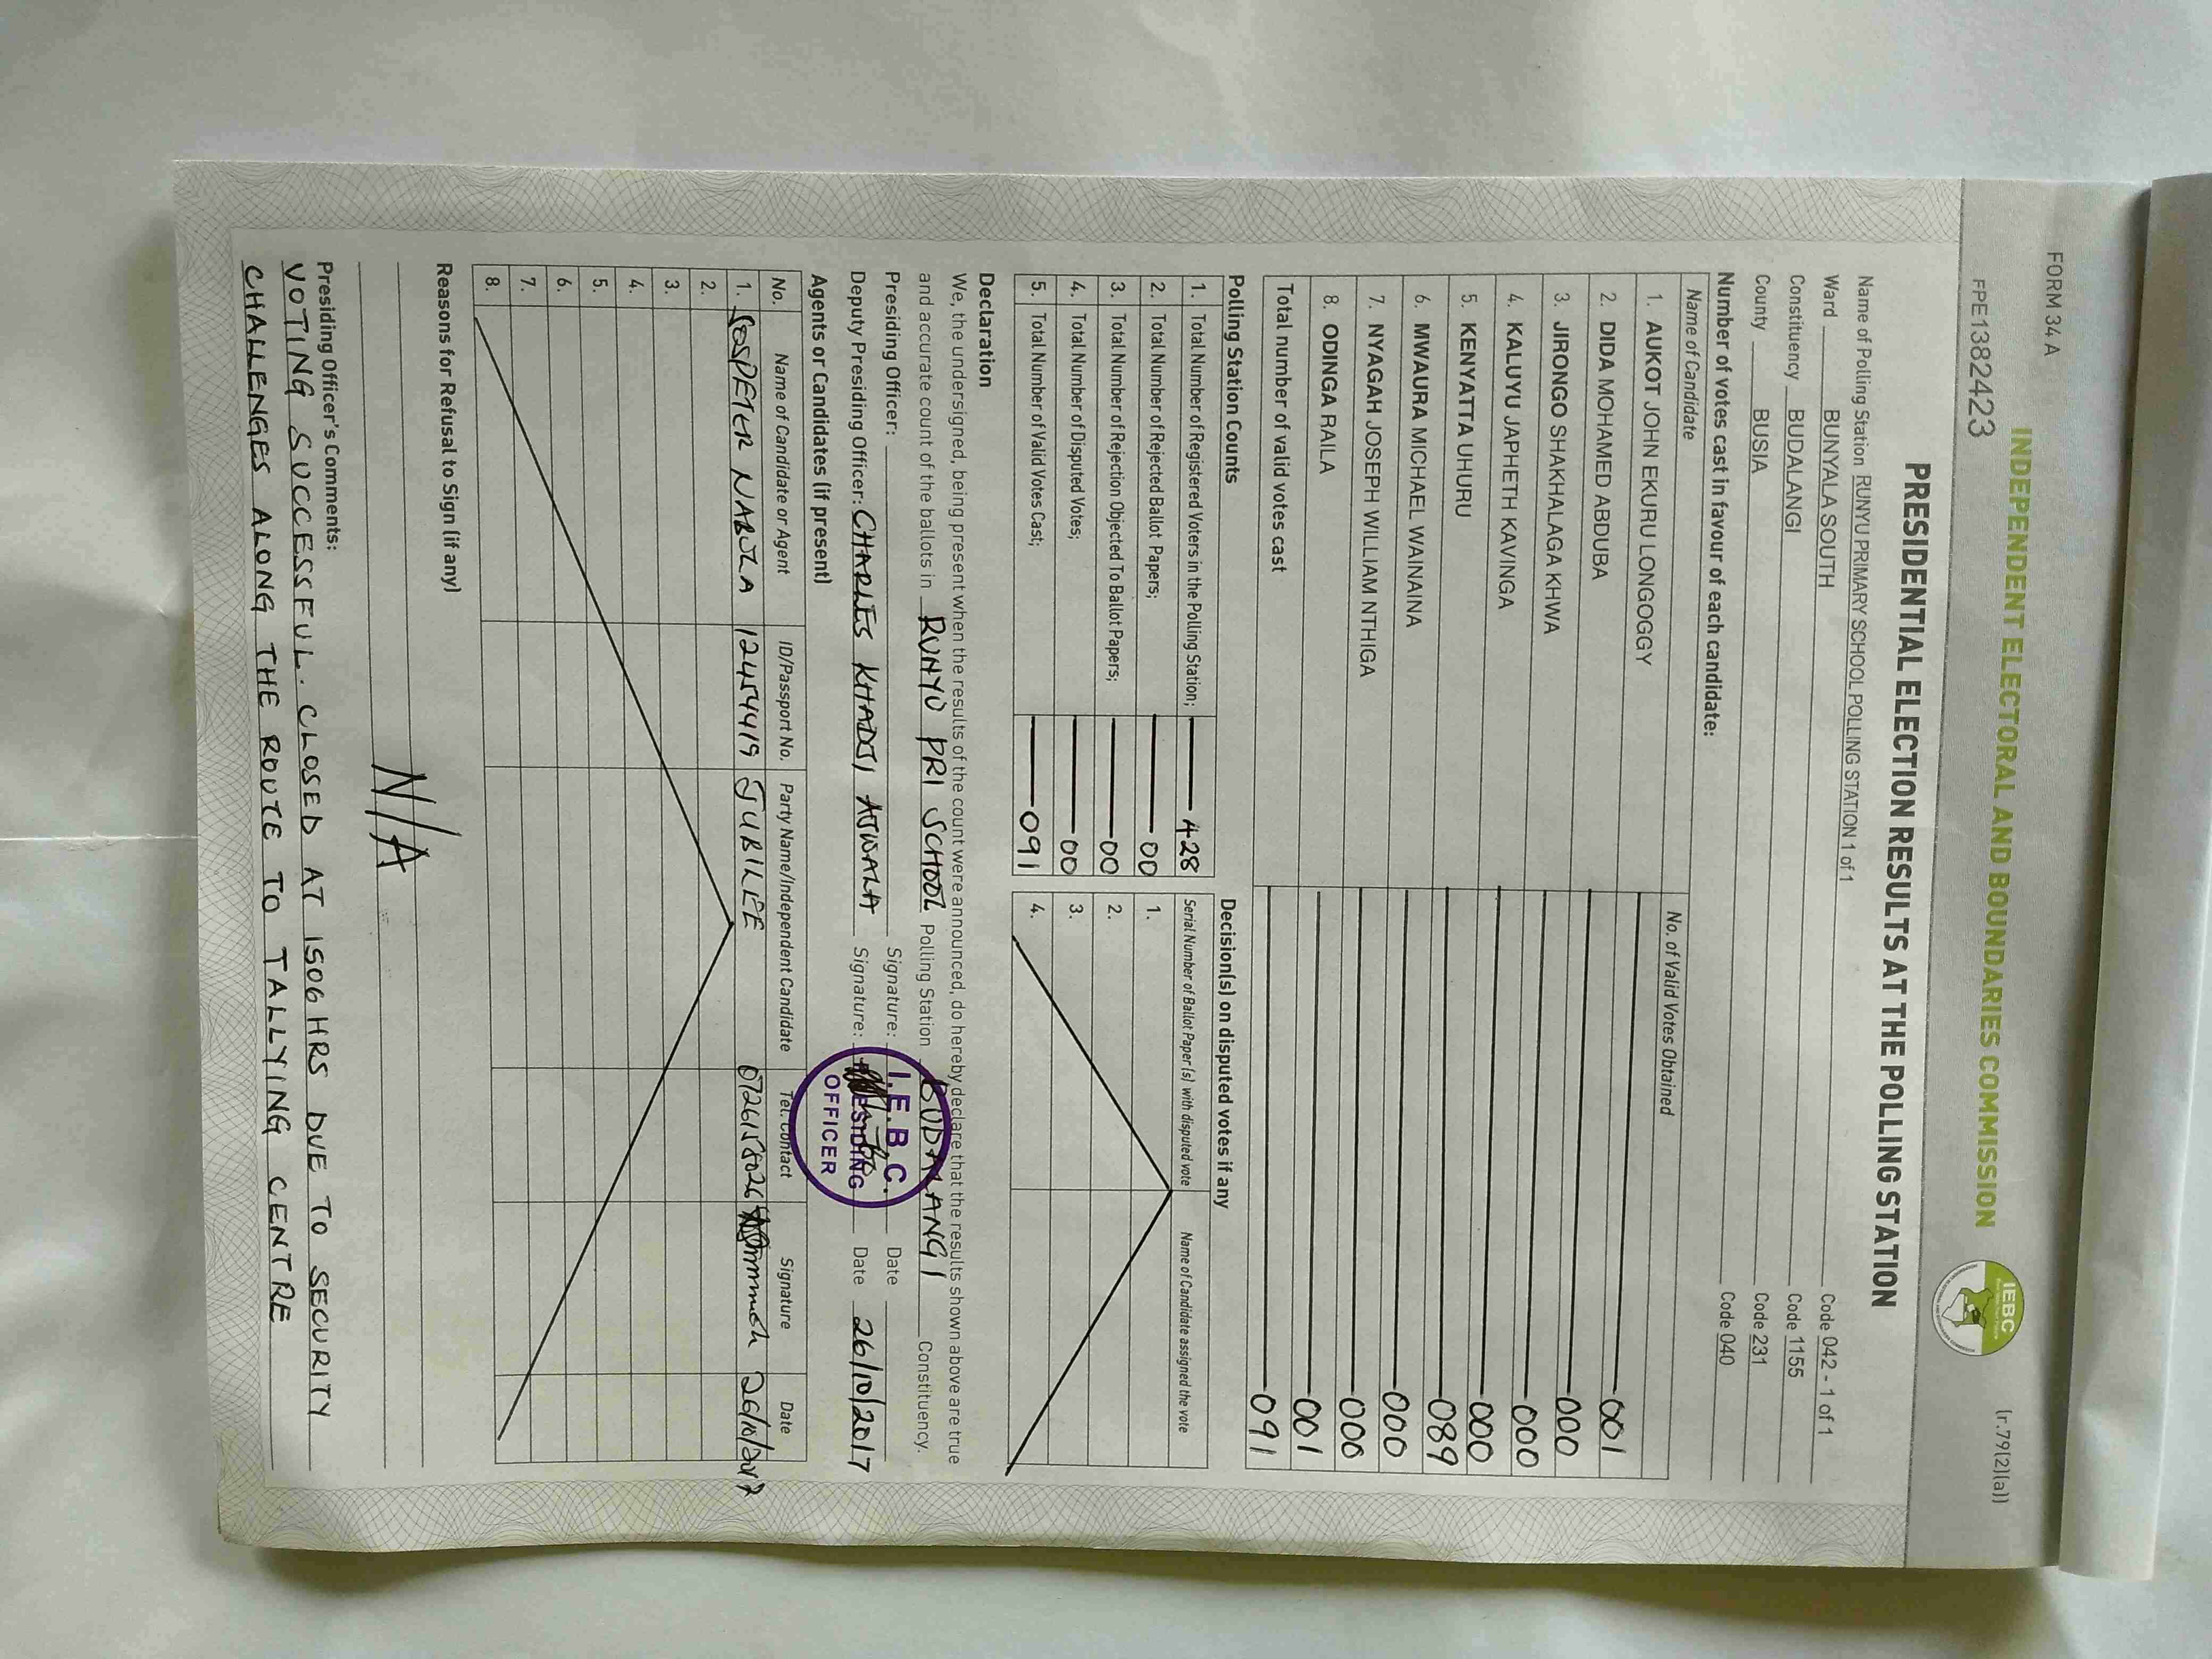 FORM 34 A
(r.79(2)(a))
INDEPENDENT ELECTORAL AND BOUNDARIES COMMISSION
IEBC
FPE1382423
PRESIDENTIAL ELECTION RESULTS AT THE POLLING STATION
Name of Polling Station RUNYU PRIMARY SCHOOL POLLING STATION 1 of 1 Code 042 - 1 of 1
Ward BUNYALA SOUTH Code 1155
Constituency BUDALANGI Code 231
County BUSIA Code 040
Number of votes cast in favour of each candidate:
Name of Candidate No. of Valid Votes Obtained
1. AUKOT JOHN EKURU LONGOGGY 001
2. DIDA MOHAMED ABDUBA 000
3. JIRONGO SHAKHALAGA KHWA 000
4. KALUYU JAPHETH KAVINGA 000
5. KENYATTA UHURU 089
6. MWAURA MICHAEL WAINAINA 000
7. NYAGAH JOSEPH WILLIAM NTHIGA 000
8. ODINGA RAILA 001
Total number of valid votes cast 091
Polling Station Counts Decision(s) on disputed votes if any
1. Total Number of Registered Voters in the Polling Station; 428 Serial Number of Ballot Paper(s) with disputed vote Name of Candidate assigned the vote
2. Total Number of Rejected Ballot Papers; 00 1.
3. Total Number of Rejection Objected To Ballot Papers; 00 2.
4. Total Number of Disputed Votes; 00 3.
5. Total Number of Valid Votes Cast; 091 4.
Declaration
We, the undersigned, being present when the results of the count were announced, do hereby declare that the results shown above are true
and accurate count of the ballots in RUNYU PRI SCHOOL Polling Station BUDALANGI Constituency.
Presiding Officer: Signature: Date
Deputy Presiding Officer: CHARLES Signature: Date 26/10/2017
I.E.B.C.
PRESIDING
OFFICER
Agents or Candidates (if present)
No. Name of Candidate or Agent ID/Passport No. Party Name/Independent Candidate Tel. Contact Signature Date
1. SOSPETER NABULA 12454419 JUBILEE 0726158026 26/10/2017
2.
3.
4.
5.
6.
7.
8.
Reasons for Refusal to Sign (if any)
N/A
Presiding Officer's Comments:
VOTING SUCCESSFUL. CLOSED AT 1506HRS DUE TO SECURITY
CHALLENGES ALONG THE ROUTE TO TALLYING CENTRE